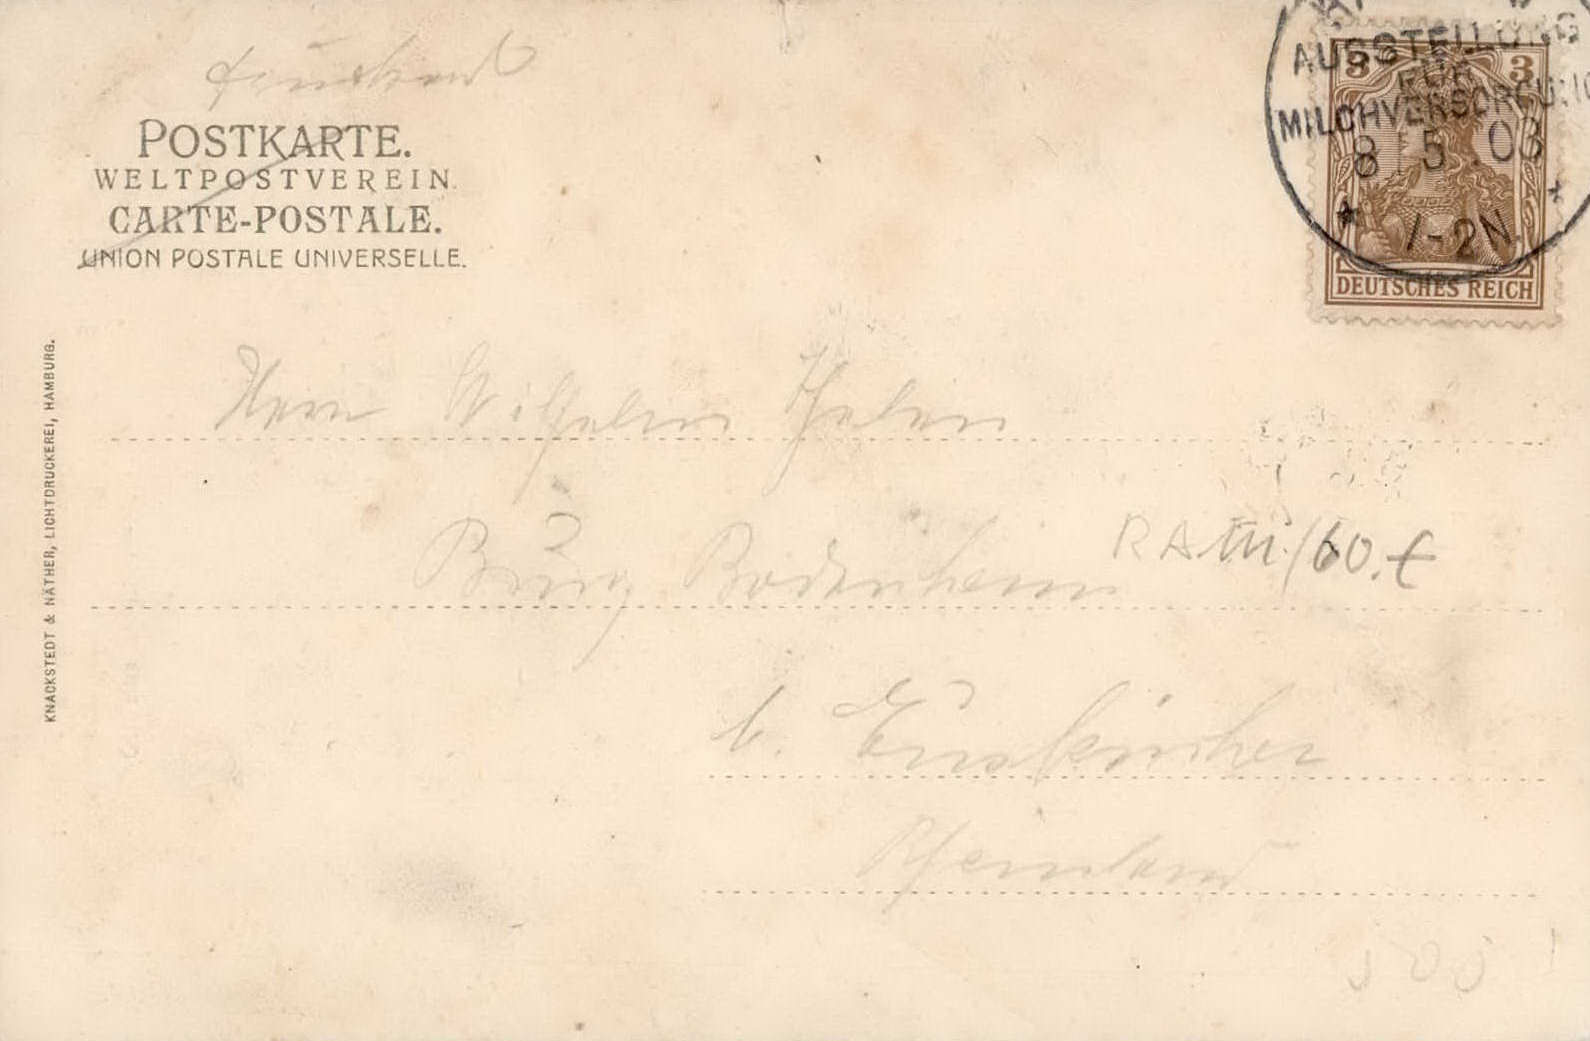 Drucksache
POSTKARTE.
WELTPOSTVEREIN.
CARTE-POSTALE.
UNION POSTALE UNIVERSELLE.
AUSSTELLUNG
FÜR
MILCHVERSORGUNG
8 5 03
1-2N
3 3
DEUTSCHES REICH
KNACKSTEDT & NÄTHER, LICHTDRUCKEREI, HAMBURG.
Herrn Wilhelm
Burg Bodenheim
b. Euskirchen
Rheinland
/60.€